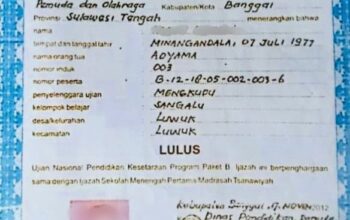 Pemuda dan Olahraga Kabupaten/Kota Banggai
Provinsi Sulawesi Tengah menerangkan bahwa
nama
tempat dan tanggal lahir MINANGANDALA, 07 JULI 1977
nama orang tua AOYAMA
nomor induk 003
nomor peserta B-12-18-05-002-003-6
penyelenggara ujian MENGKUDU
kelompok belajar SANGALU
desa/kelurahan LUWUK
kecamatan LUWUK
LULUS
Ujian Nasional Pendidikan Kesetaraan Program Paket B. Ijazah ini berpenghargaan
sama dengan Ijazah Sekolah Menengah Pertama/Madrasah Tsanawiyah
Kabupaten Banggai, NOVEM 2012
Dinas Pendidikan Pemuda